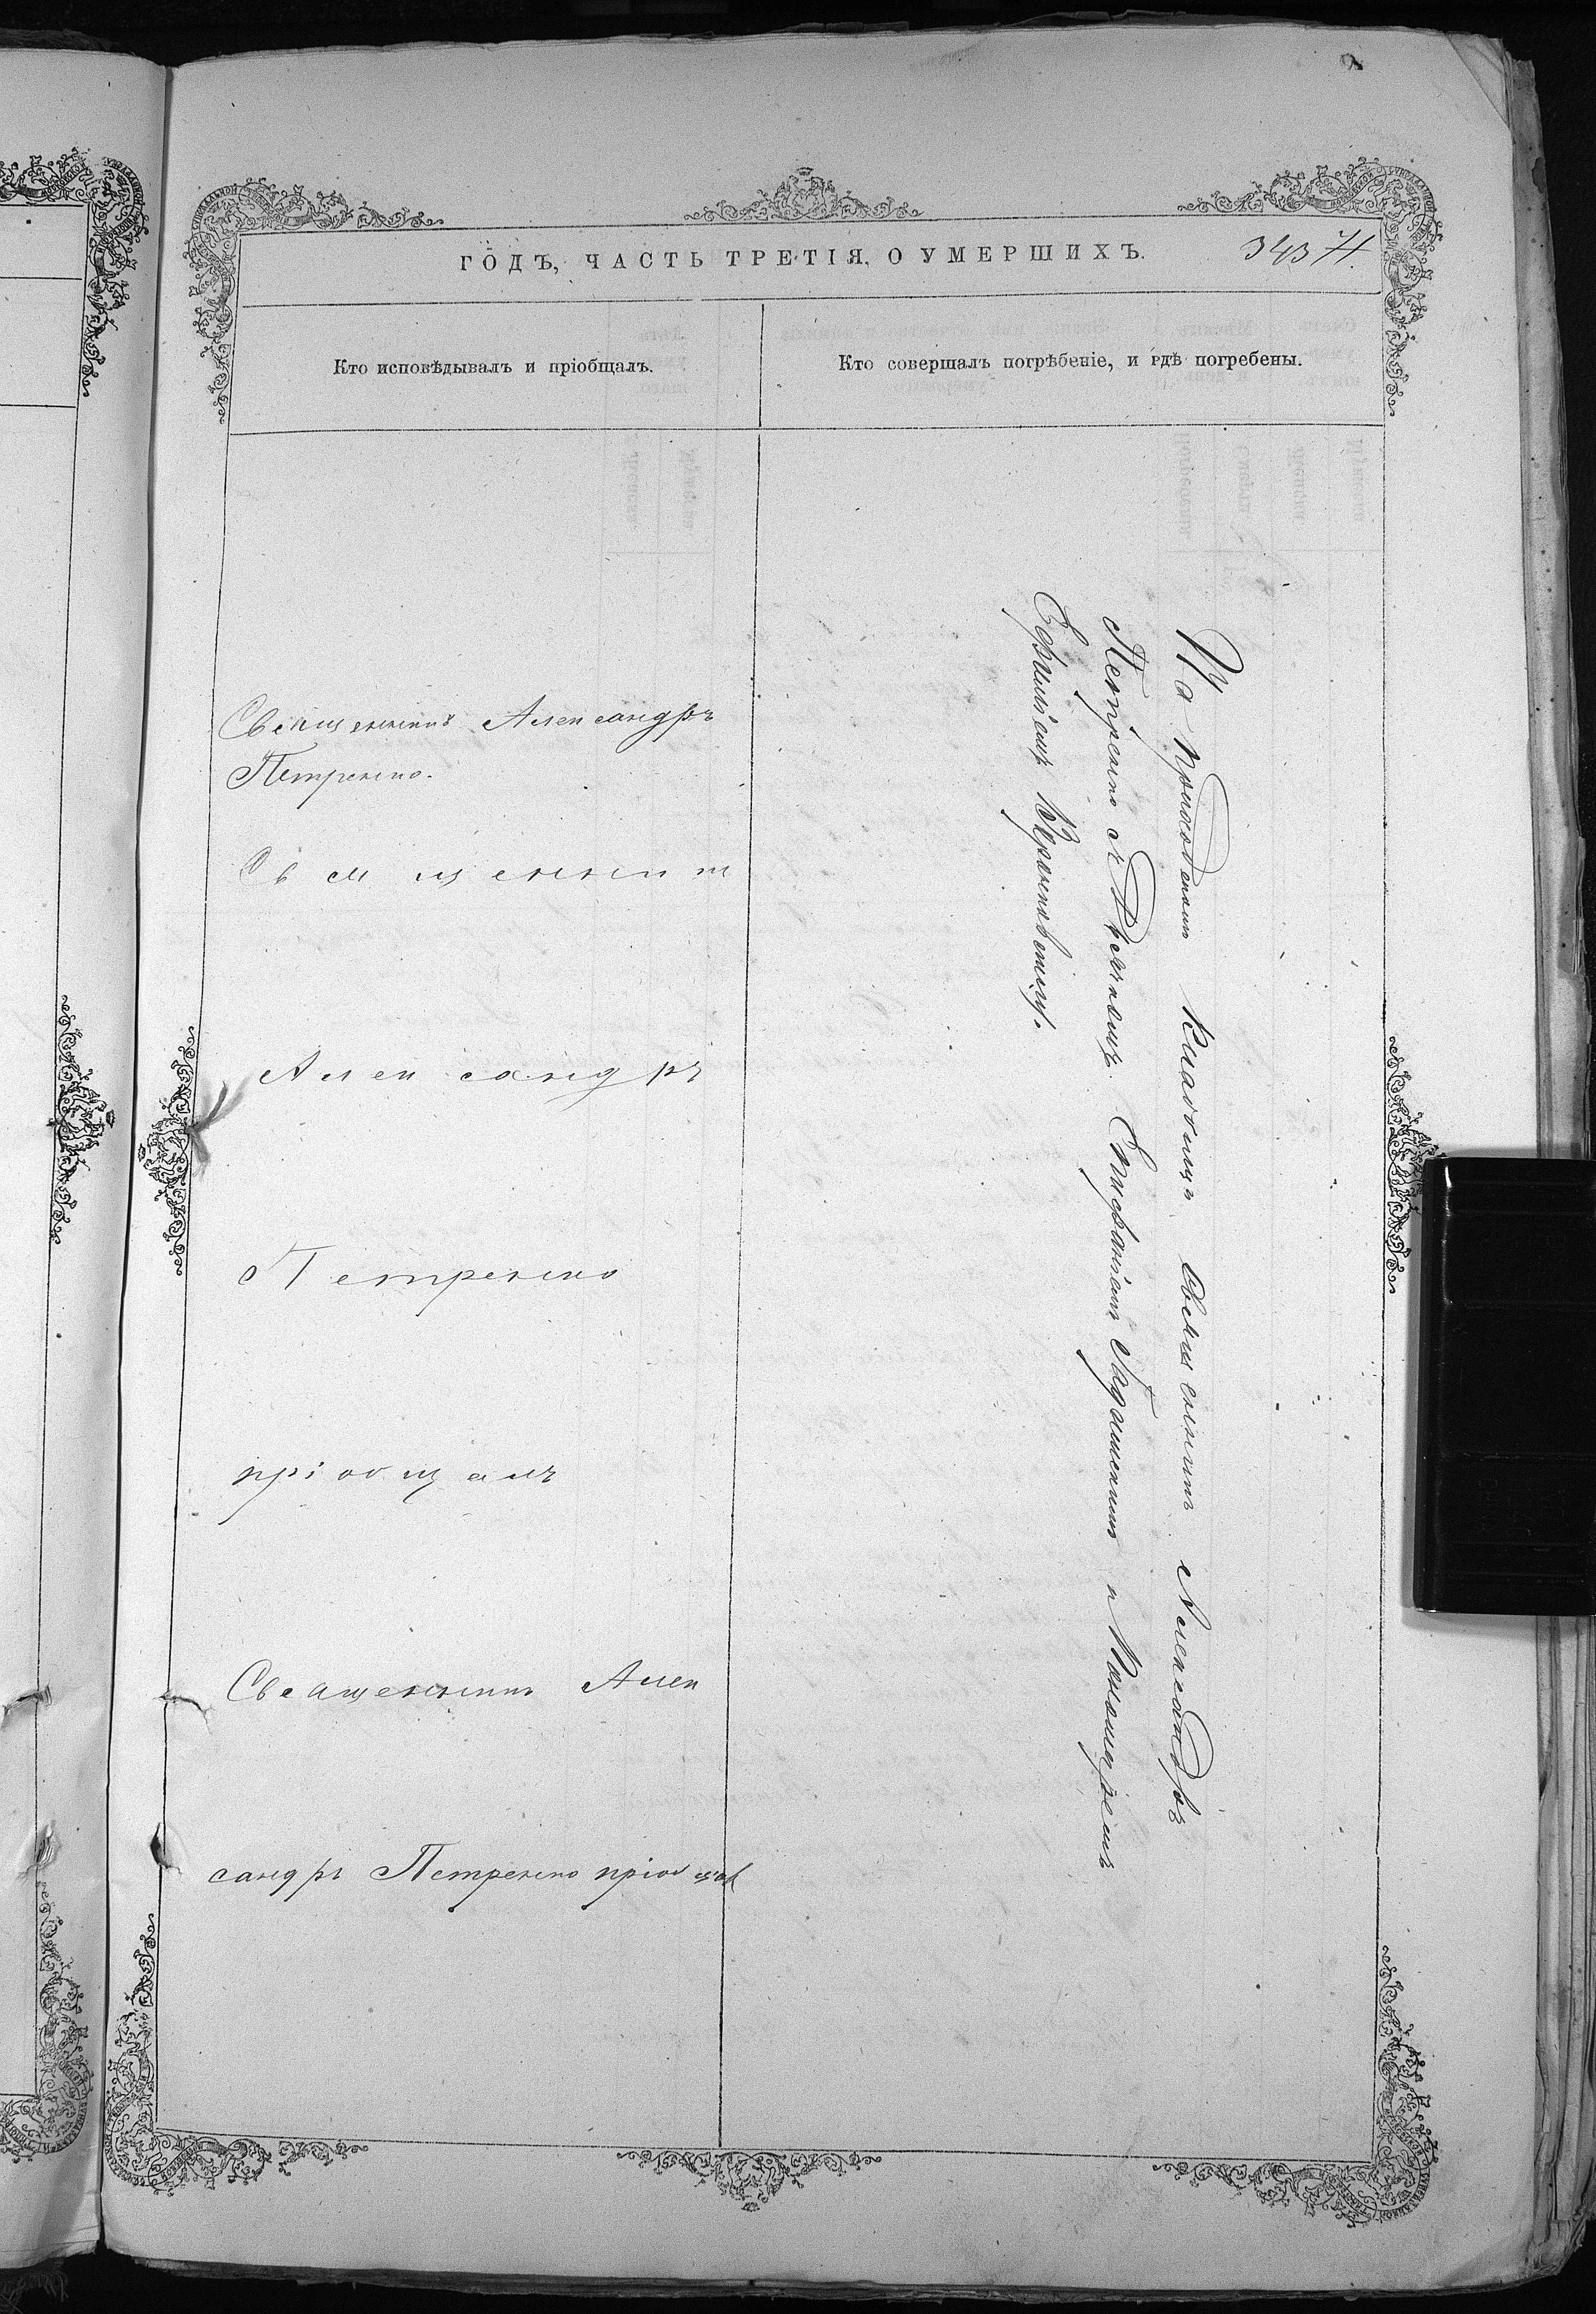 ГОДЪ, ЧАСТЬ ТРЕТІЯ, О УМЕРШИХЪ.
343
Кто исповѣдывалъ и пріобщалъ.
Кто совершалъ погрѣбеніе, и гдѣ погребены.
Священникъ Александръ
Петренко.
Священник
Александръ
Петренко
пріобщалъ
Священникъ Алек
сандръ Петренко пріобщал
На приходскомъ кладбищѣ Священникъ Александръ
Петренко съ Дьячкомъ Епифаніемъ и Пономаремъ
Ефиміемъ